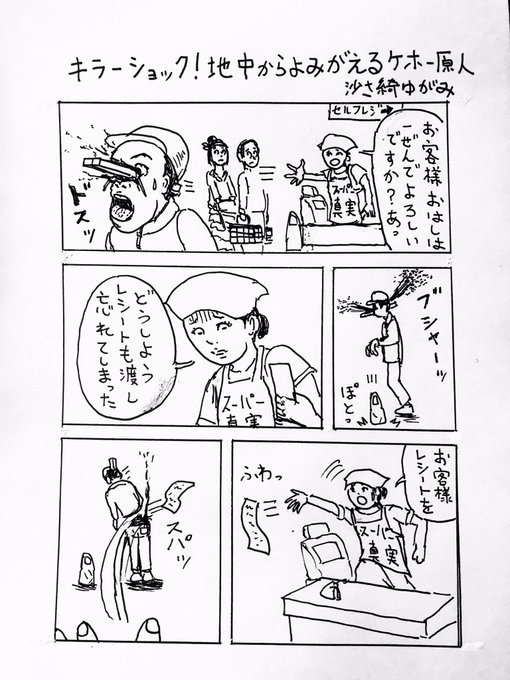 キラーショック!地中からよみがえるケホー原人
沙さ綺ゆがみ
セルフレジ→
お客様 おはしは
一ぜんでよろしい
ですか?あっ
スーパー
真実
ドスッ
ブシャーッ
ぽとっ
どうしよう
レシートも渡し
忘れてしまった
スーパー
真実
お客様
レシートを
ふわっ
スーパー
真実
スパッ